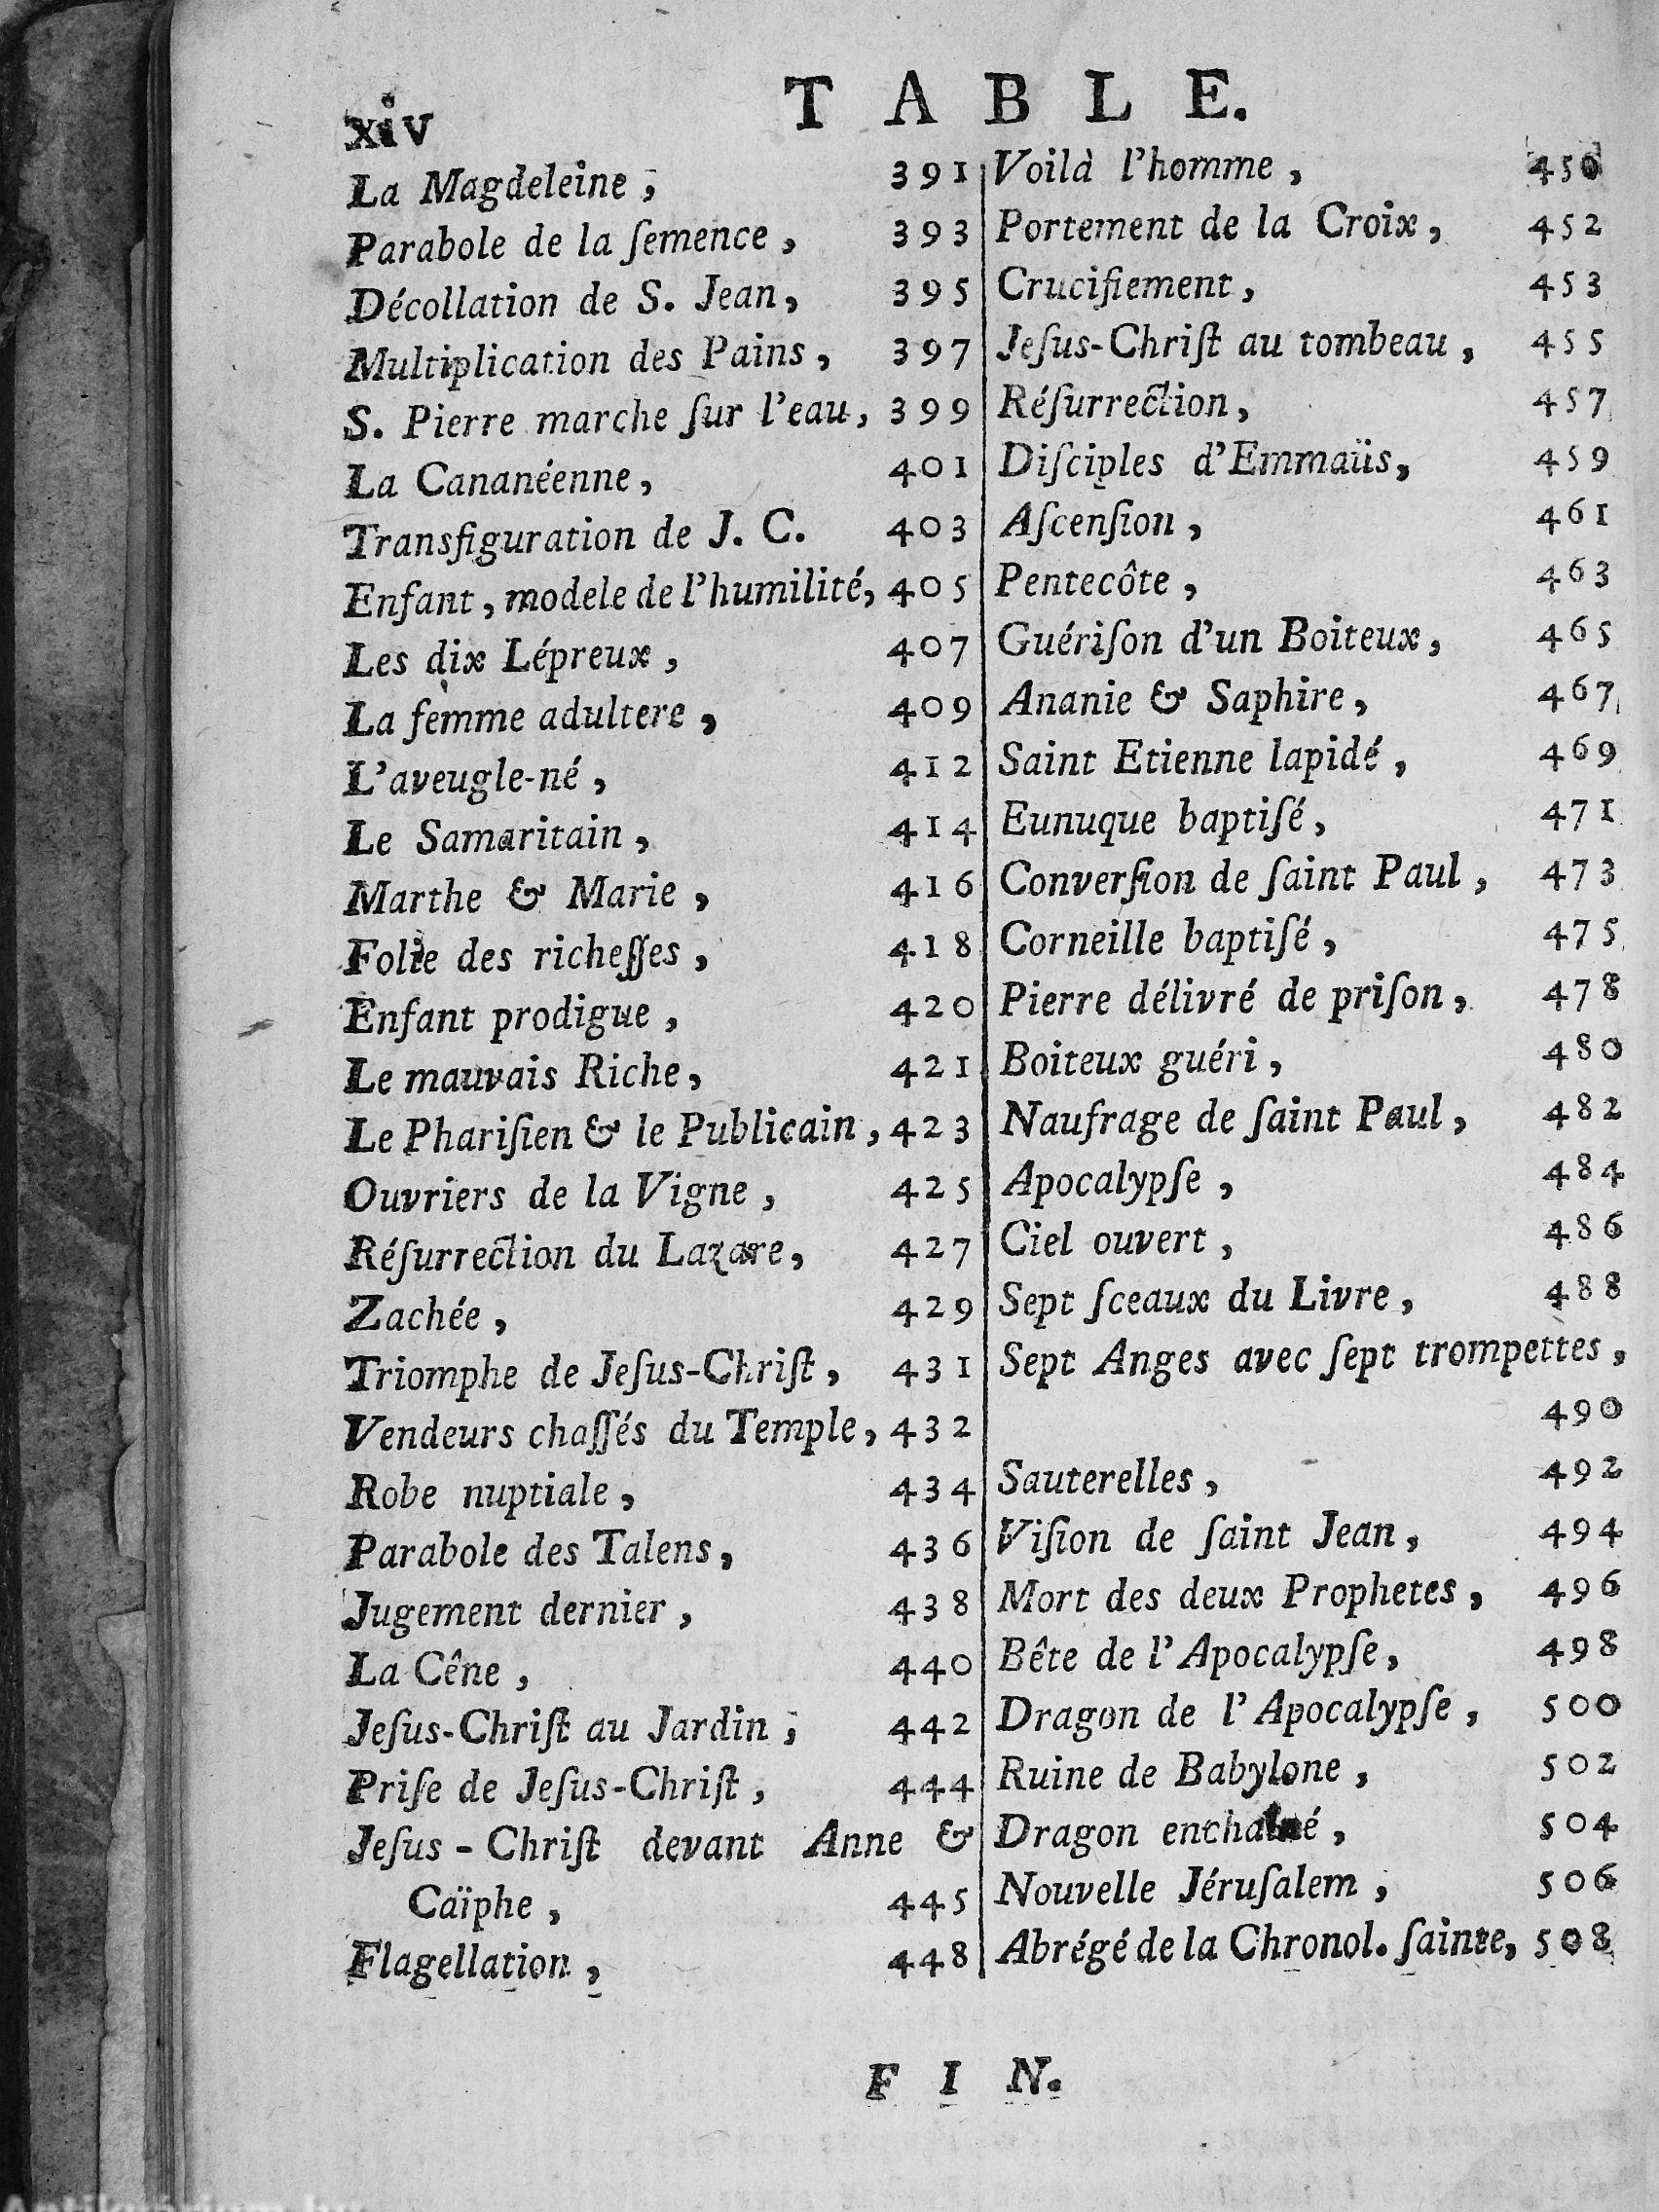 xiv
T A B L E.
La Magdeleine, 391
Parabole de la ſemence, 393
Décollation de S. Jean, 395
Multiplication des Pains, 397
S. Pierre marche ſur l'eau, 399
La Cananéenne, 401
Transfiguration de J. C. 403
Enfant, modele de l'humilité, 405
Les dix Lépreux, 407
La femme adultere, 409
L'aveugle-né, 412
Le Samaritain, 414
Marthe & Marie, 416
Folie des richeſſes, 418
Enfant prodigue, 420
Le mauvais Riche, 421
Le Phariſien & le Publicain, 423
Ouvriers de la Vigne, 425
Réſurrection du Lazare, 427
Zachée, 429
Triomphe de Jeſus-Chriſt, 431
Vendeurs chaſſés du Temple, 432
Robe nuptiale, 434
Parabole des Talens, 436
Jugement dernier, 438
La Cêne, 440
Jeſus-Chriſt au Jardin, 442
Priſe de Jeſus-Chriſt, 444
Jeſus-Chriſt devant Anne &
Caïphe, 445
Flagellation, 448
Voilà l'homme, 450
Portement de la Croix, 452
Crucifiement, 453
Jeſus-Chriſt au tombeau, 455
Réſurrection, 457
Diſciples d'Emmaüs, 459
Aſcenſion, 461
Pentecôte, 463
Guériſon d'un Boiteux, 465
Ananie & Saphire, 467
Saint Etienne lapidé, 469
Eunuque baptiſé, 471
Converſion de ſaint Paul, 473
Corneille baptiſé, 475
Pierre délivré de priſon, 478
Boiteux guéri, 480
Naufrage de ſaint Paul, 482
Apocalypſe, 484
Ciel ouvert, 486
Sept ſceaux du Livre, 488
Sept Anges avec ſept trompettes,
490
Sauterelles, 492
Viſion de ſaint Jean, 494
Mort des deux Prophetes, 496
Bête de l'Apocalypſe, 498
Dragon de l'Apocalypſe, 500
Ruine de Babylone, 502
Dragon enchaîné, 504
Nouvelle Jéruſalem, 506
Abrégé de la Chronol. ſainte, 508
F I N.